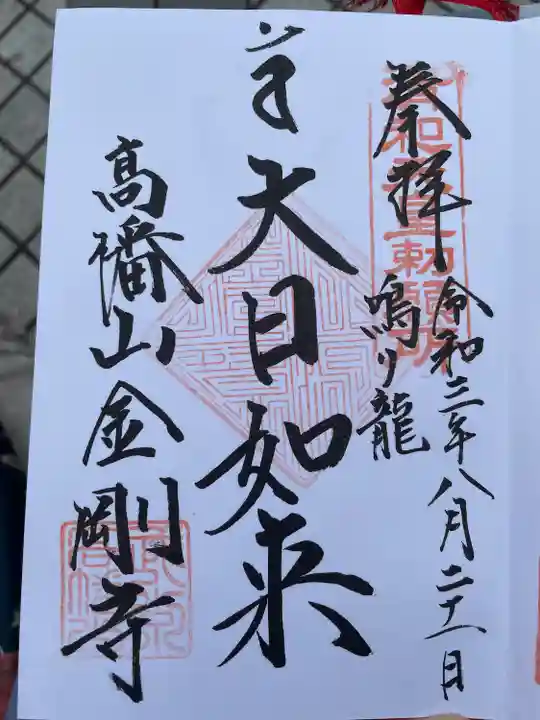 奉拝
令和三年八月二十一日
鳴り龍
大日如来
高幡山金剛寺